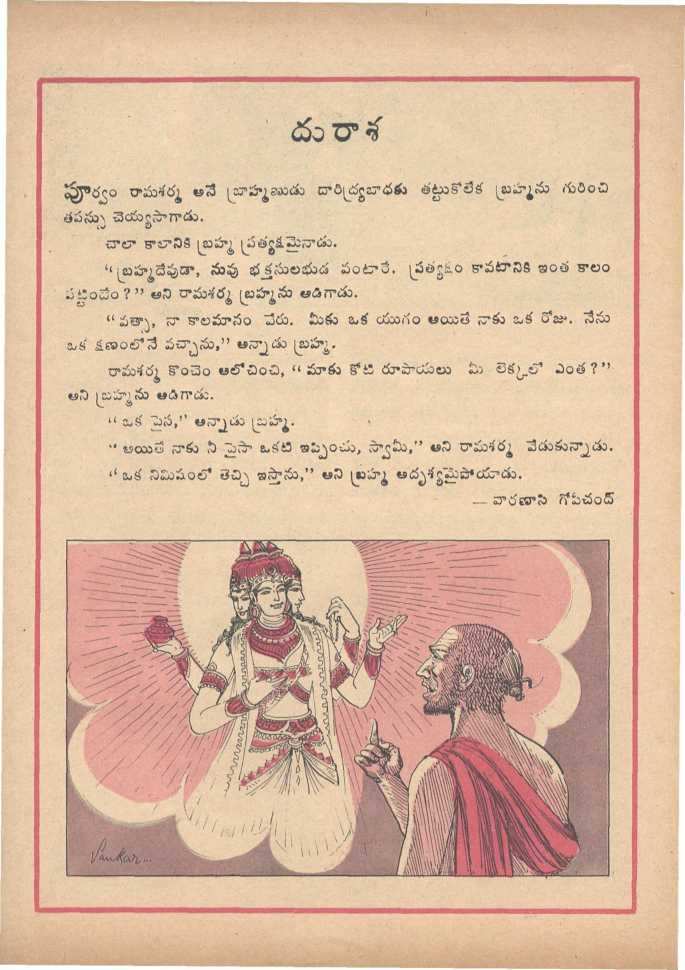 దురాశ
పూర్వం రామశర్మ అనే బ్రాహ్మణుడు దారిద్ర్యబాధకు తట్టుకొలేక బ్రహ్మను గురించి
తపస్సు చెయ్యసాగాడు.
చాలా కాలానికి బ్రహ్మ ప్రత్యక్షమైనాడు.
“బ్రహ్మదేవుడా, నువు భక్తసులభుడ వంటారే. ప్రత్యక్షం కావటానికి ఇంత కాలం
పట్టిందేం?” అని రామశర్మ బ్రహ్మను అడిగాడు.
“వత్సా, నా కాలమానం వేరు. మీకు ఒక యుగం అయితే నాకు ఒక రోజు. నేను
ఒక క్షణంలోనే వచ్చాను,” అన్నాడు బ్రహ్మ.
రామశర్మ కొంచెం ఆలోచించి, “మాకు కోటి రూపాయలు మీ లెక్కలో ఎంత?”
అని బ్రహ్మను అడిగాడు.
“ఒక పైస,” అన్నాడు బ్రహ్మ.
“అయితే నాకు నీ పైసా ఒకటి ఇప్పించు, స్వామీ,” అని రామశర్మ వేడుకున్నాడు.
“ఒక నిమిషంలో తెచ్చి ఇస్తాను,” అని బ్రహ్మ అదృశ్యమైపోయాడు.
— వారణాసి గోపీచంద్
Sankar...